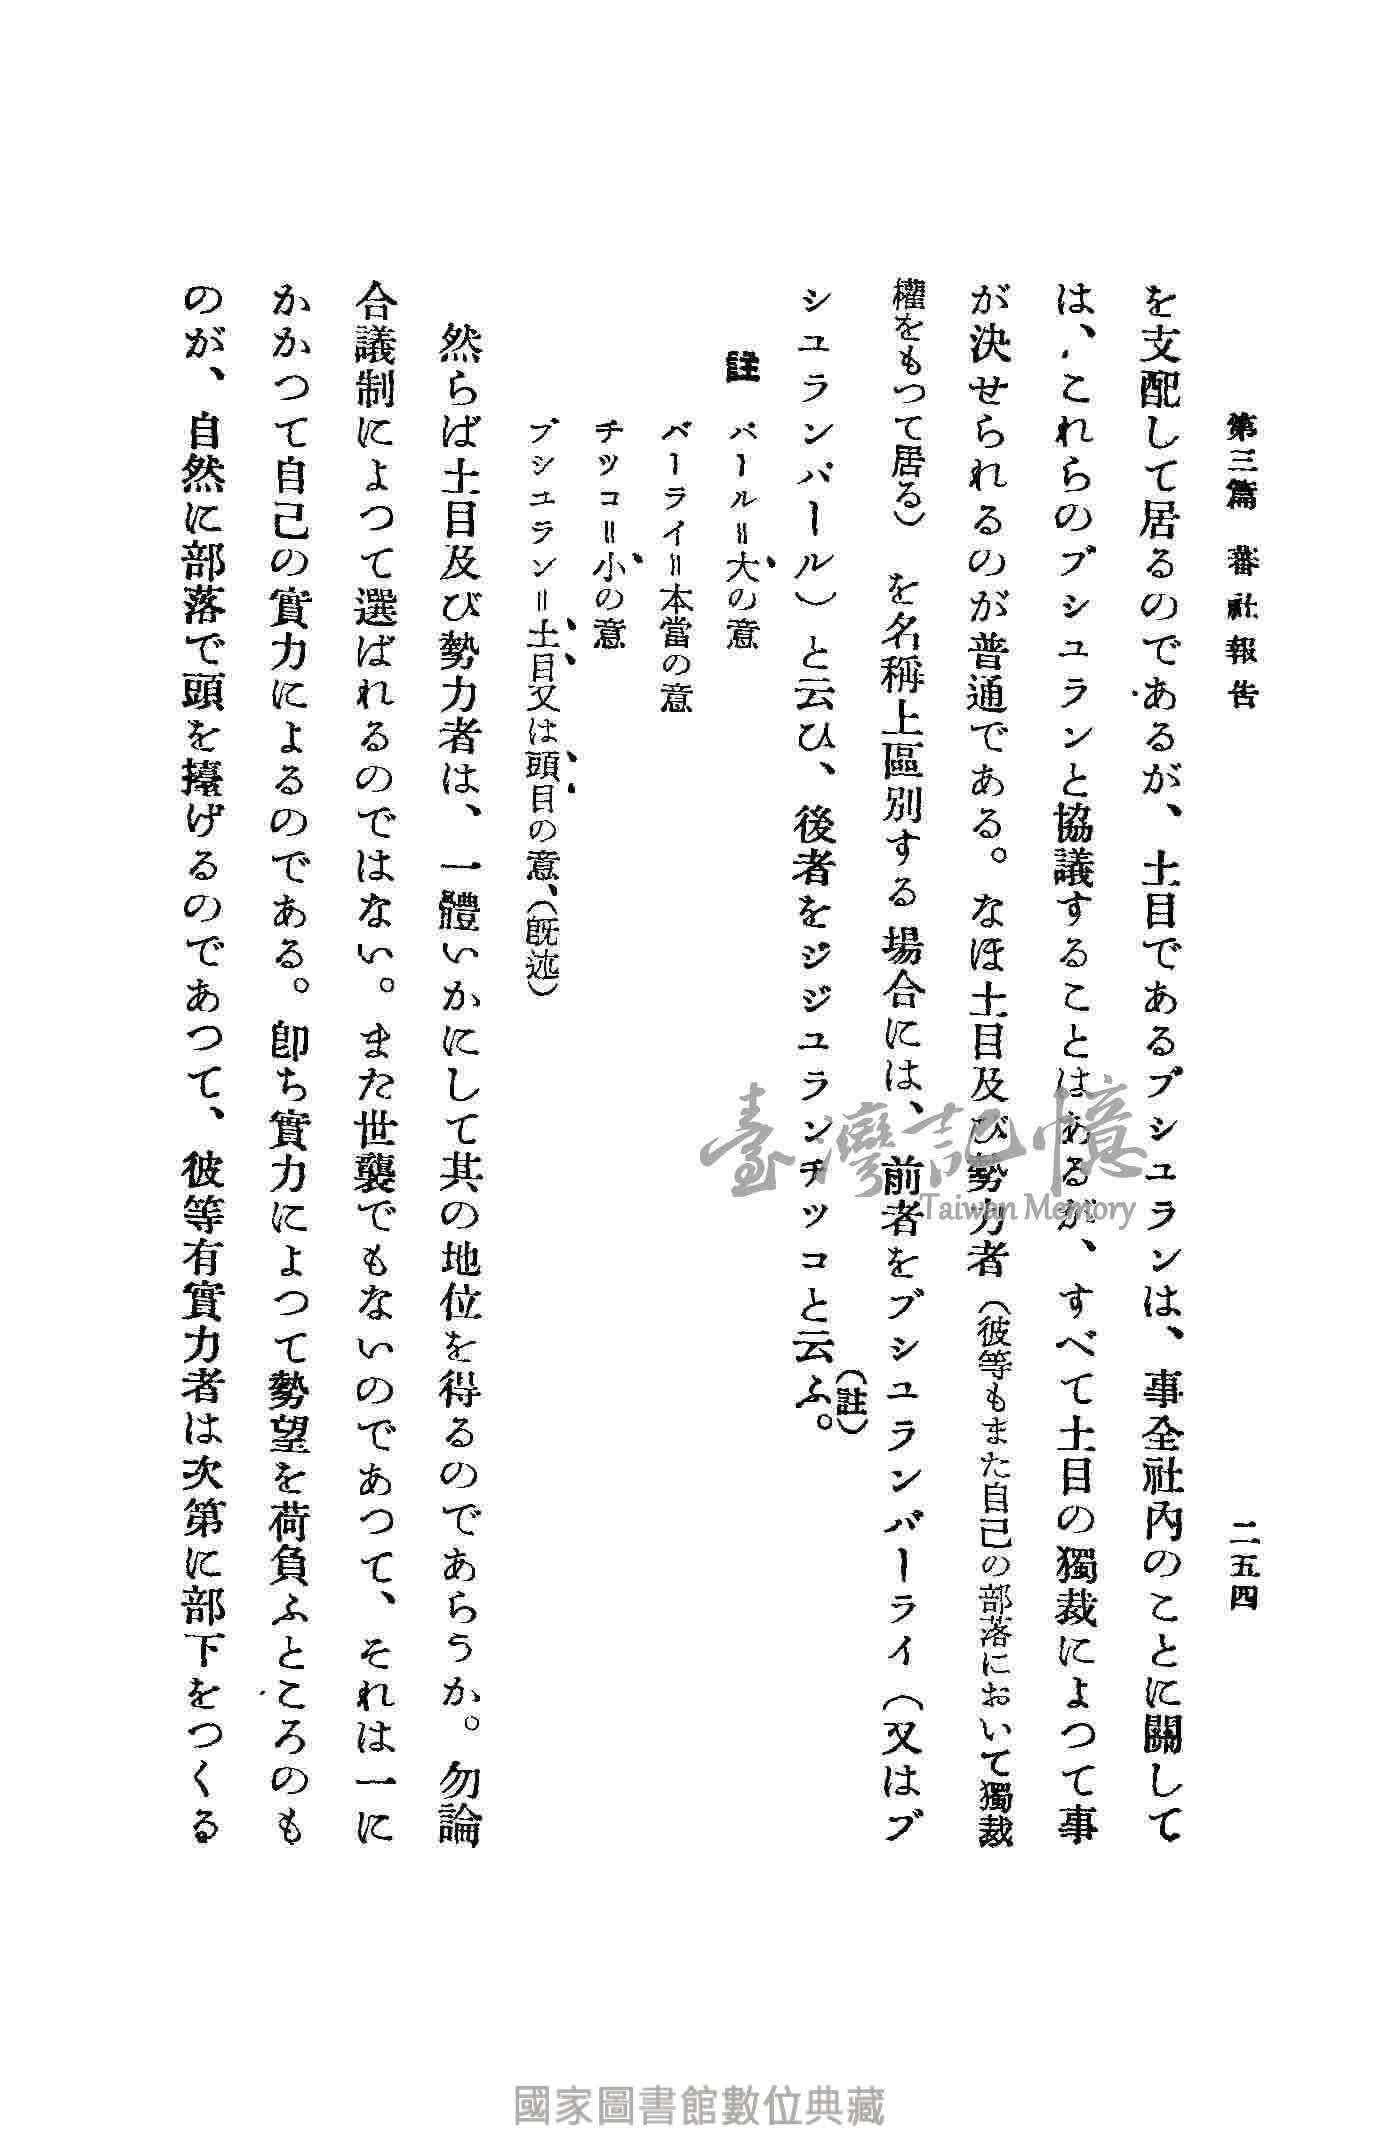 第三篇 蕃社報告 二五四
を支配して居るのであるが、土目であるブシユランは、事全社內のことに關して
は、これらのブシユランと協議することはあるが、すべて土目の獨裁によつて事
が決せられるのが普通である。なほ土目及び勢力者（彼等もまた自己の部落において獨裁
權をもつて居る）を名稱上區別する場合には、前者をブシユランバーライ（又はブ
シユランバール）と云ひ、後者をジジユランチツコと云ふ。（註）
註 バール＝大の意
バーライ＝本當の意
チツコ＝小の意
ブシユラン＝土目又は頭目の意、（既述）
然らば土目及び勢力者は、一體いかにして其の地位を得るのであらうか。勿論
合議制によつて選ばれるのではない。また世襲でもないのであつて、それは一に
かかつて自己の實力によるのである。卽ち實力によつて勢望を荷負ふところのも
のが、自然に部落で頭を擡げるのであつて、彼等有實力者は次第に部下をつくる
臺灣記憶
Taiwan Memory
國家圖書館數位典藏